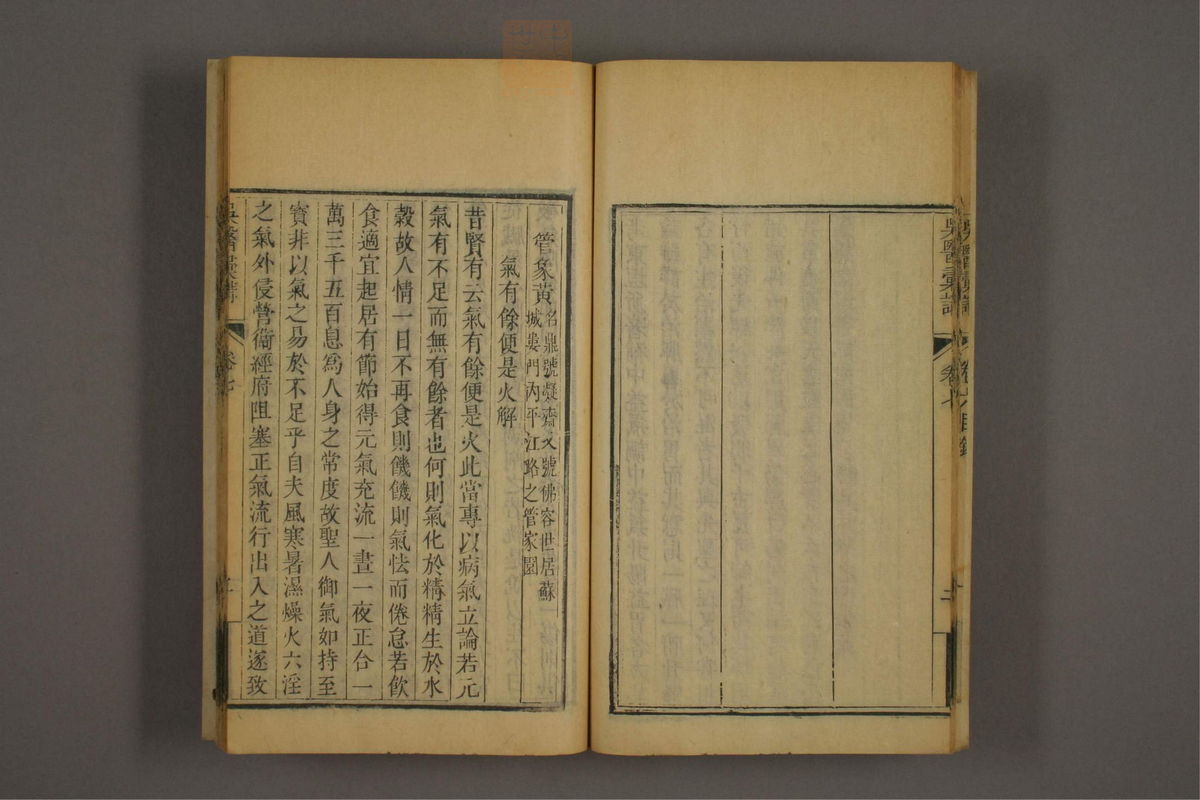 吳醫彙講
卷六目錄
吳醫彙講
卷七
二
管象黃
名鼎號凝齋又號佛容世居蘇
城婁門內平江路之管家園
氣有餘便是火解
昔賢有云氣有餘便是火此當專以病氣立論若元
氣有不足而無有餘者也何則氣化於精精生於水
穀故人情一日不再食則饑饑則氣怯而倦怠若飲
食適宜起居有節始得元氣充流一晝一夜正合一
萬三千五百息爲人身之常度故聖人御氣如持至
寶非以氣之易於不足乎自夫風寒暑濕燥火六淫
之氣外侵營衛經府阻塞正氣流行出入之道遂致
吳醫彙講
卷七